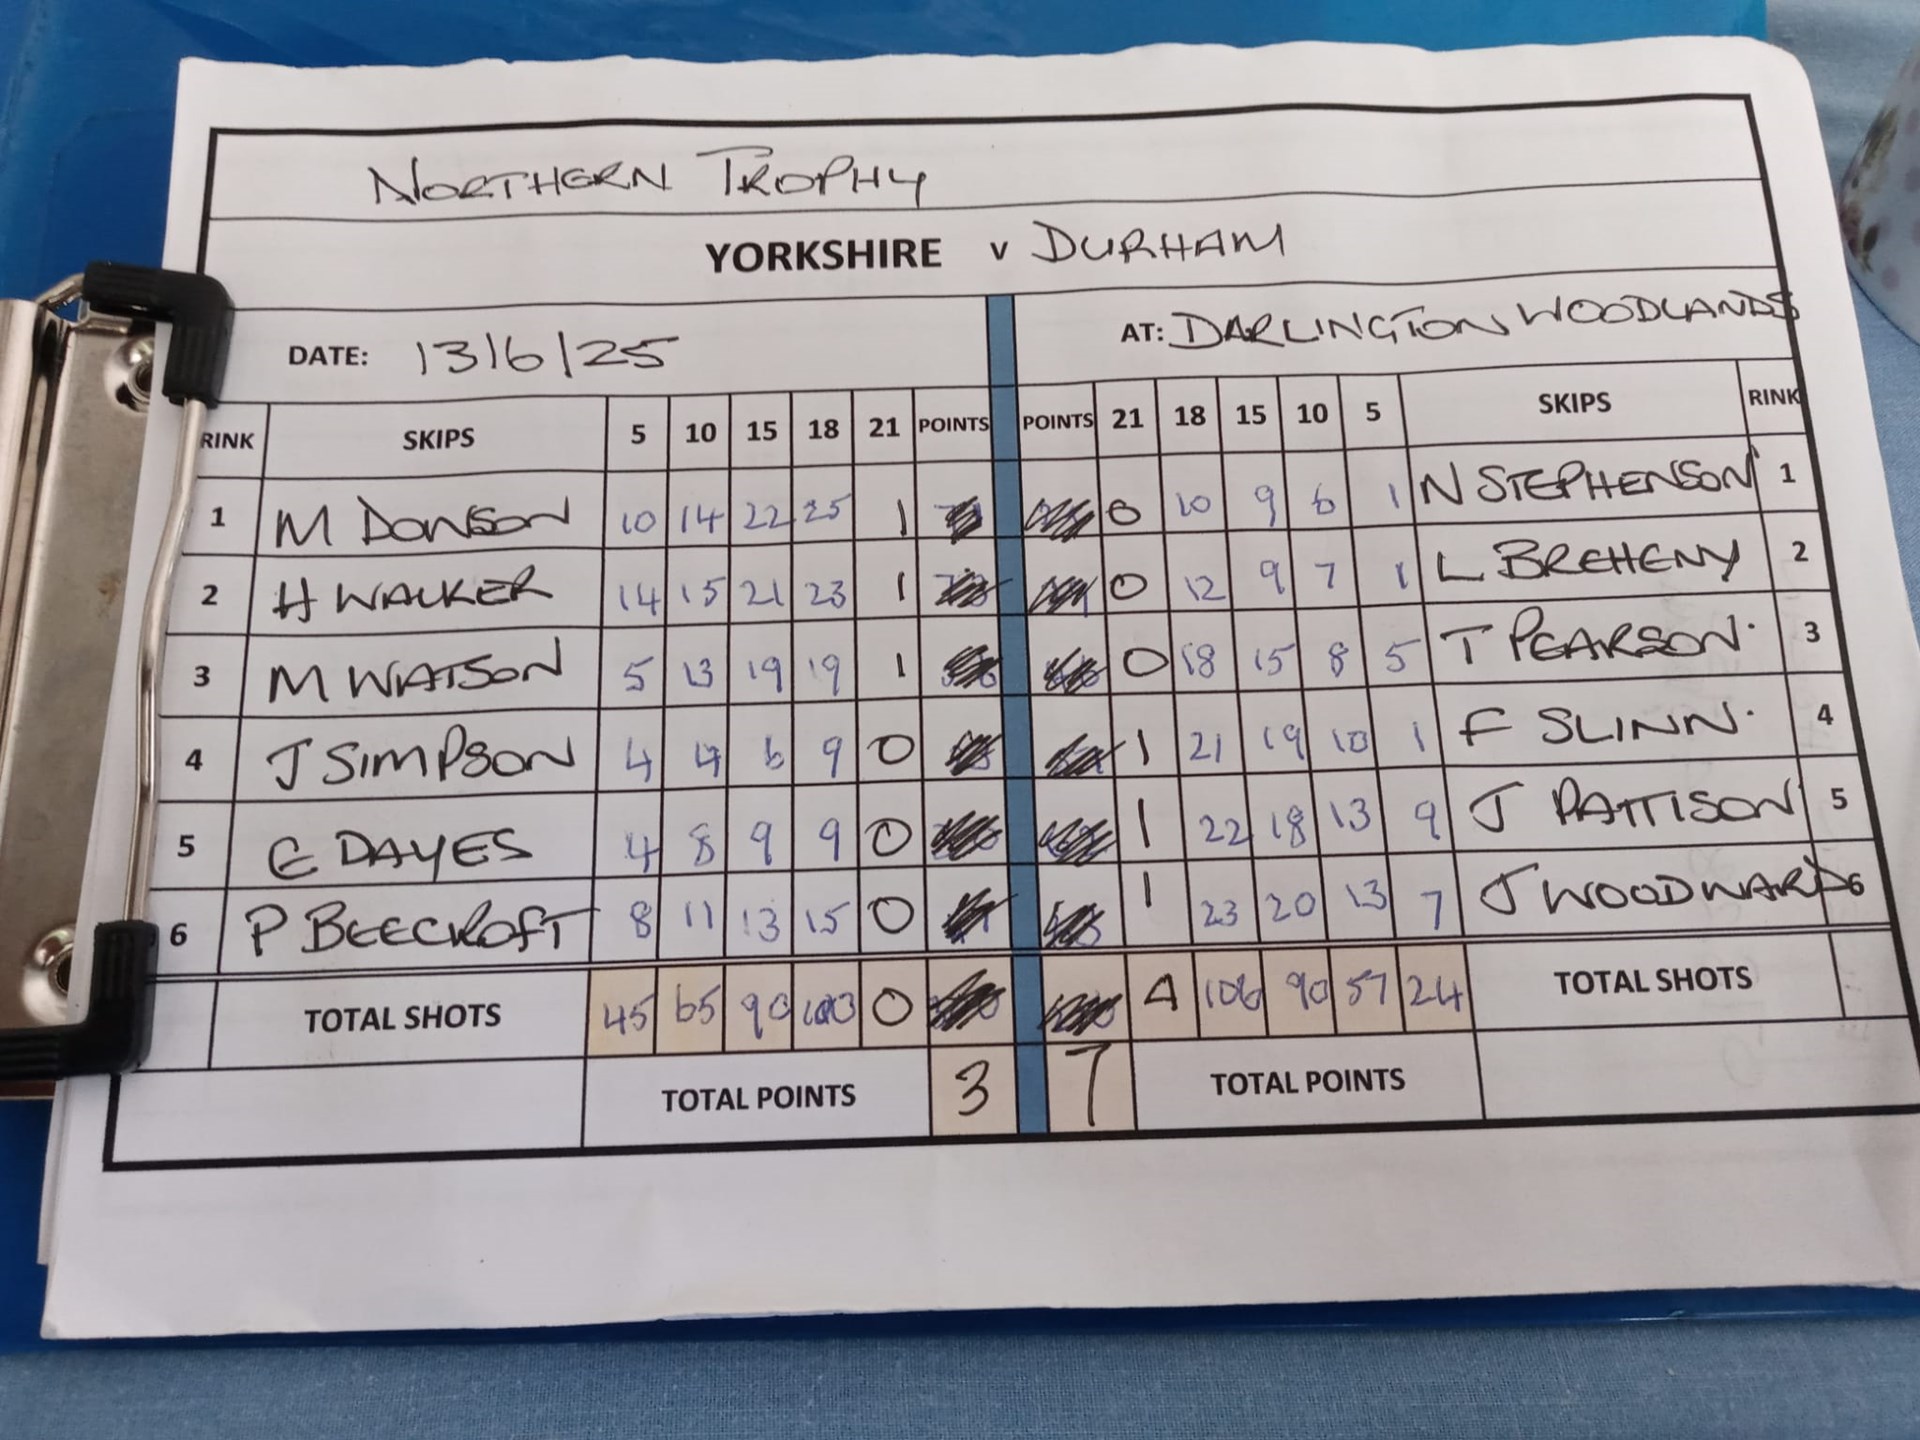 NORTHERN TROPHY
YORKSHIRE V DURHAM
DATE: 13/6/25 AT: DARLINGTON WOODLANDS
RINK SKIPS 5 10 15 18 21 POINTS POINTS 21 18 15 10 5 SKIPS RINK
1 M DONSON 10 14 22 25 1 0 10 9 6 1 N STEPHENSON 1
2 H WALKER 14 15 21 23 1 0 12 9 7 1 L BREHENY 2
3 M WATSON 5 13 19 19 1 0 18 15 8 5 T PEARSON. 3
4 J SIMPSON 4 4 6 9 0 1 21 19 10 1 F SLINN. 4
5 E DAYES 4 8 9 9 0 1 22 18 13 9 J PATTISON 5
6 P BEECROFT 8 11 13 15 0 1 23 20 13 7 J WOODWARD 6
TOTAL SHOTS 45 65 90 0 4 106 90 57 24 TOTAL SHOTS
TOTAL POINTS 3 7 TOTAL POINTS